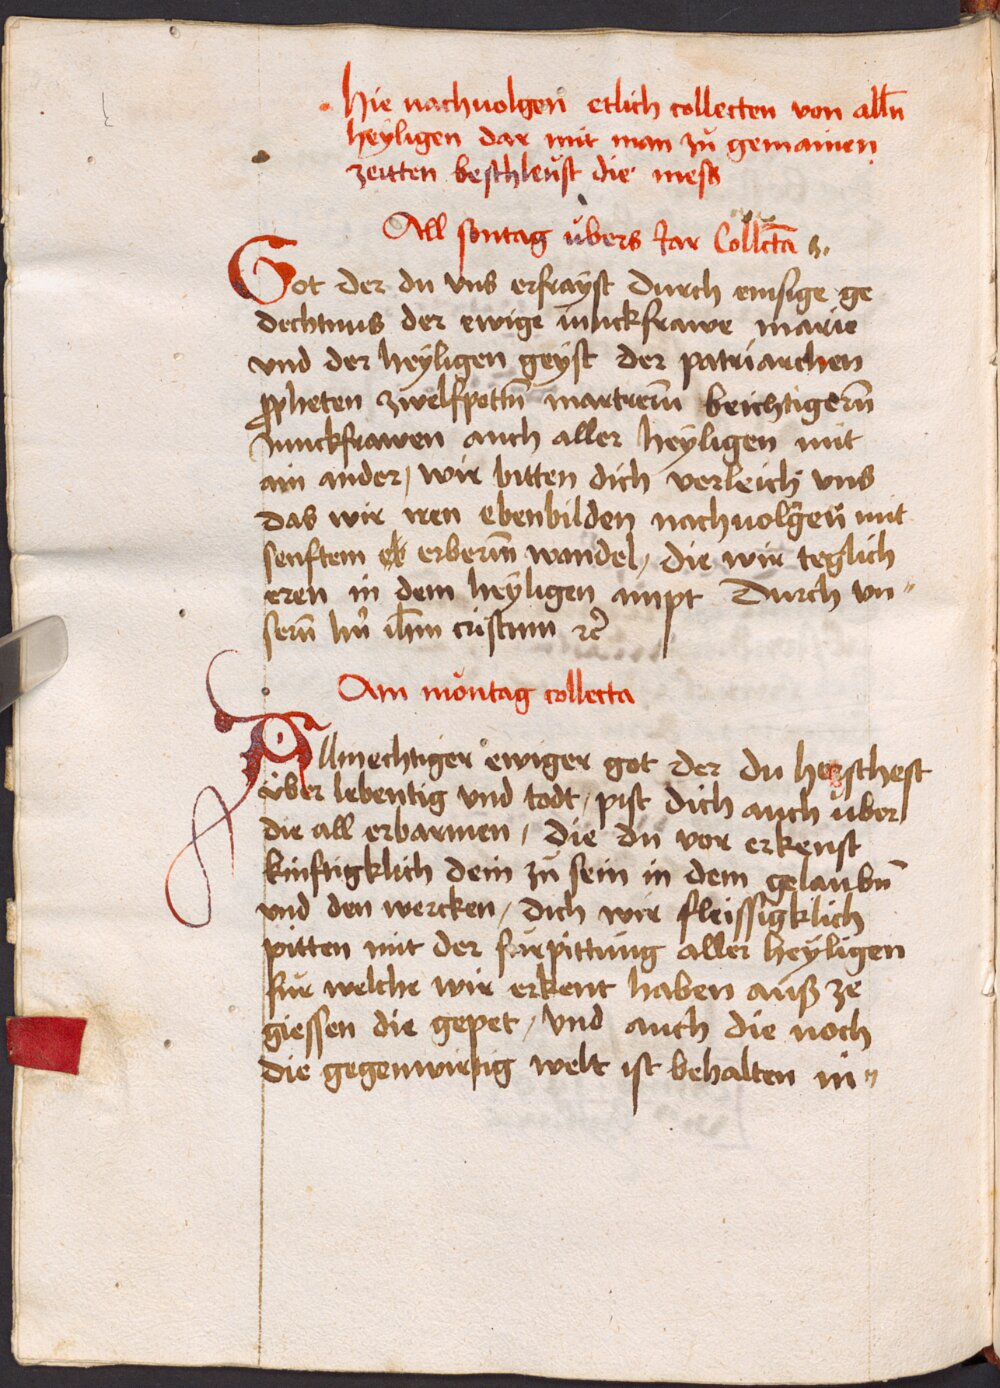 Hie nachuolgen etlich collecten von alln̄
heyligen dar mit man zů gemainen
zeitten beschleust die mess
All sontag übers Jar Collcta
Got der du vns erfrayst durch emsige ge
dechtnus der ewige iunckfrawe marie
vnd der heyligen geyst der patriarchen
propheten zwelfpottn̄ martrern̄ beichtigern̄
Junckfrawen auch aller heyligen mit
ain ander / wir bitten dich verleich vns
das wir iren ebenbilden nachuolgen mit
senftem erberm̄ wandel / die wir teglich
eren in dem heyligen ampt Durch vn〃
sern̄ hn̄ ihm̄ cristum ꝛc̄
Am mōntag collecta
Allmechtiger ewiger got der du herschest
über lebentig vnd todt / pist dich auch über
die all erbarmen / die du vor erkenst
künftigklich dein zů sein in dem gelaubn̄
vnd den wercken / dich wir fleissigklich
pitten mit der fürpittung aller heyligen
für welche wir erkent haben auß ze
giessen die gepet / vnd auch die noch
die gegenwirtig welt ist behalten in〃